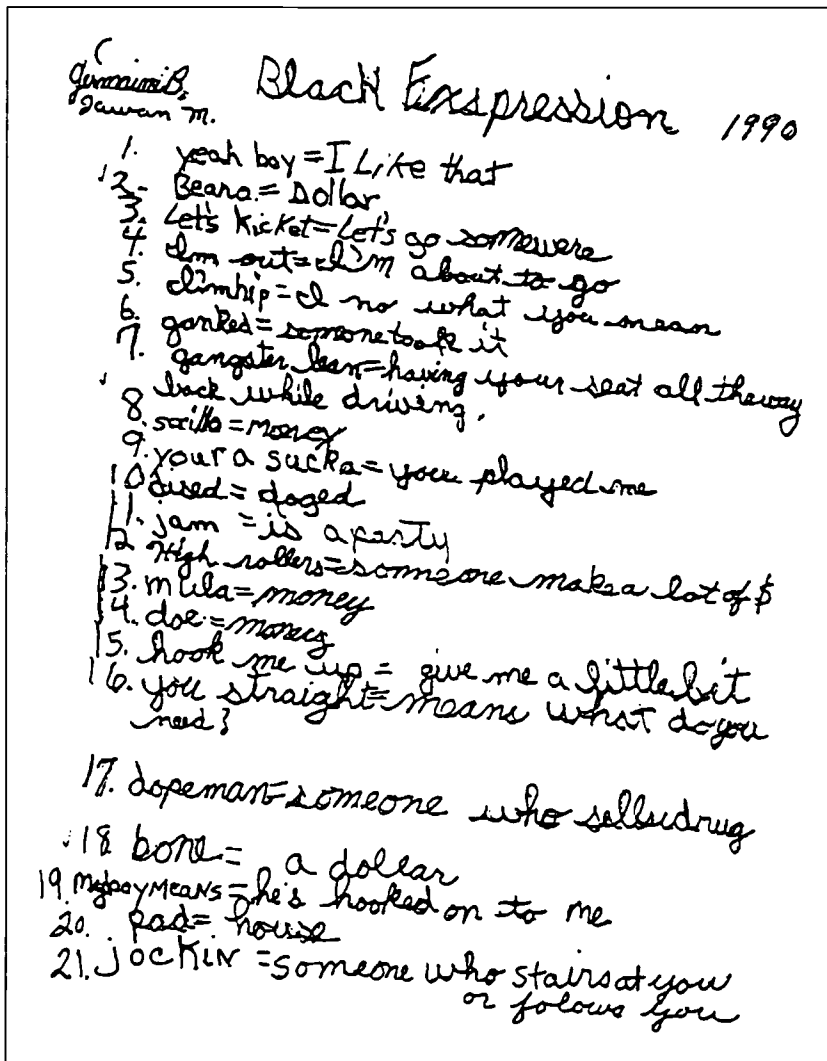 Jawan M.
Black Exspression 1990
1. yeah boy = I Like that
2- Beana = Dollar
3. Let's Kicket = Let's go somewere
4. Im out = I'm about to go
5. I'mhip = I no what you mean
6. ganked = somone took it
7. gangster lean = having your seat all theway
back while driving.
8. scrilla = money
9. your a sucka = you played me
10 = doged
11. jam = is a party
12 High rollers = someone make a lot of $
13. mula = money
14. doe = money
15. hook me up = give me a little bit
16. you straight = means what do you
need?
17. dopeman = someone who sells drug
18 bone = a dollar
19. My boy MeaNs = he's hooked on to me
20. pad = house
21. jocKiN = Someone who stairs at you
or folows you